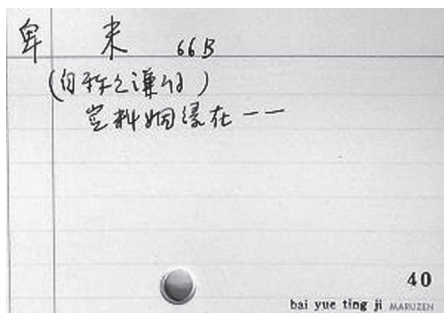 卑 末 66B
(自称之谦词)
岂料姻缘在——
40
bai yue ting ji MARUZEN